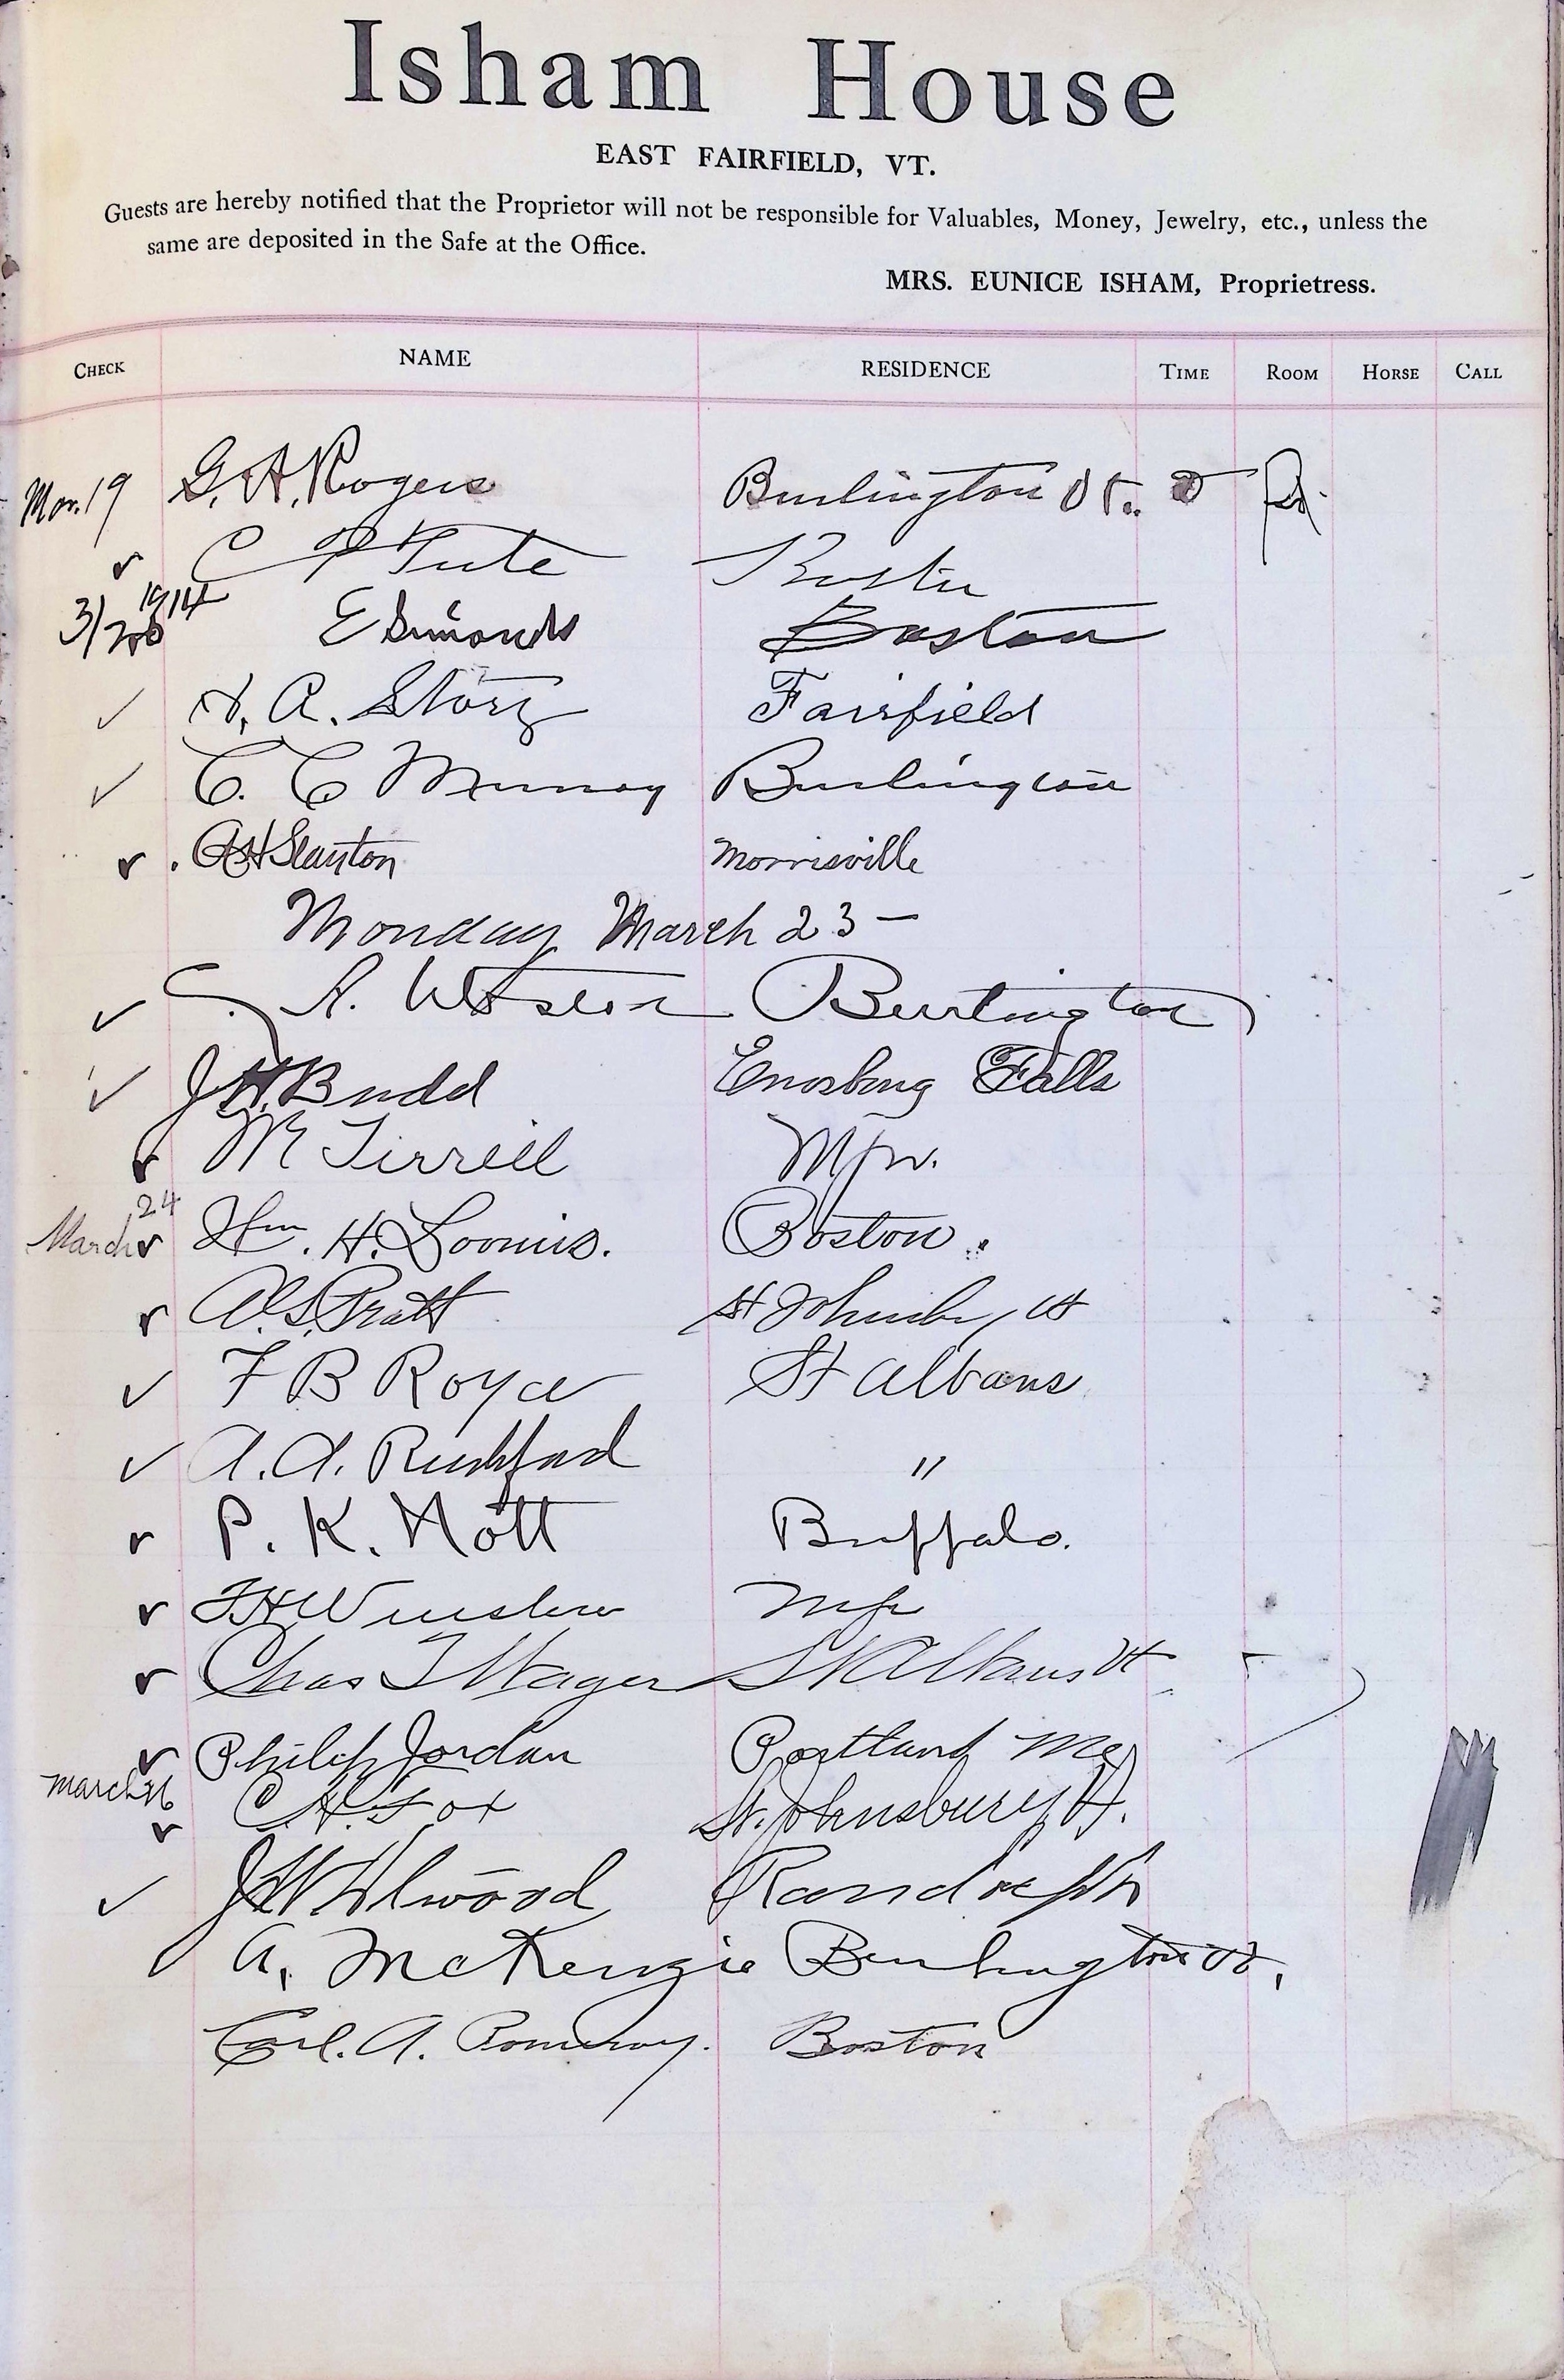 Isham House
EAST FAIRFIELD, VT.
Guests are hereby notified that the Proprietor will not be responsible for Valuables, Money, Jewelry, etc., unless the
same are deposited in the Safe at the Office.
MRS. EUNICE ISHAM, Proprietress.
CHECK NAME RESIDENCE TIME ROOM HORSE CALL
Mar. 19 G. A. Rogers Burlington Vt.
C P Tute Boston
3/20 1914 E Simonds Boston
A. Story Fairfield
C. C Murray Burlington
Slayton Morrisville
Monday March 23 —
A. Burlington
J. H. Budd Enosburg Falls
M Tirrell Mfr.
March 24 Wm. H. Loomis. Boston.
A. S. Pratt St Johnsbury Vt
F B Royce St Albans
A. A. Rushford "
P. K. Mott Buffalo.
F H Winslow Mfr
Chas T Wager St Albans Vt
Philip Jordan Portland Me
March 26 C. H. Fox St. Johnsbury Vt.
Randolph
A. McKenzie Burlington Vt.
Carl. A. Pomeroy. Boston